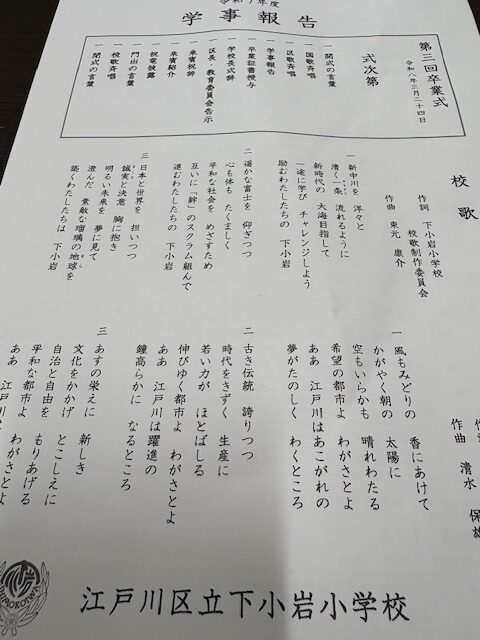 令和7年度
学事報告
第三回卒業式
令和八年三月二十四日
式次第
一 開式の言葉
一 国歌斉唱
一 区歌斉唱
一 学事報告
一 卒業証書授与
一 学校長式辞
一 区長・教育委員会告示
一 来賓祝辞
一 来賓紹介
一 祝電披露
一 門出の言葉
一 校歌斉唱
一 閉式の言葉
校歌
作詞 下小岩小学校
校歌制作委員会
作曲 東元 康介
一 新中川を 洋々と
清く一条 流れるように
新時代の 大海目指して
一途に学び チャレンジしよう
励むわたしたちの 下小岩
二 遥かな富士を 仰ぎつつ
心も体も たくましく
平和な社会を めざすため
互いに「絆」のスクラム組んで
進むわたしたちの 下小岩
三 日本と世界を 担いつつ
誠実と決意 胸に抱き
明るい未来を 夢に見て
澄んだ 素敵な瑠璃の地球を
築くわたしたちは 下小岩
作曲 清水 保雄
一 風もみどりの 香にあけて
かがやく朝の 太陽に
空もいらかも 晴れわたる
希望の都市よ わがさとよ
ああ 江戸川はあこがれの
夢がたのしく わくところ
二 古き伝統 誇りつつ
時代をきずく 生産に
若い力が ほとばしる
伸びゆく都市よ わがさとよ
ああ 江戸川は躍進の
鐘高らかに なるところ
三 あすの栄えに 新しき
文化をかかげ とこしえに
自治と自由を もりあげる
平和な都市よ わがさとよ
ああ 江戸川
江戸川区立下小岩小学校